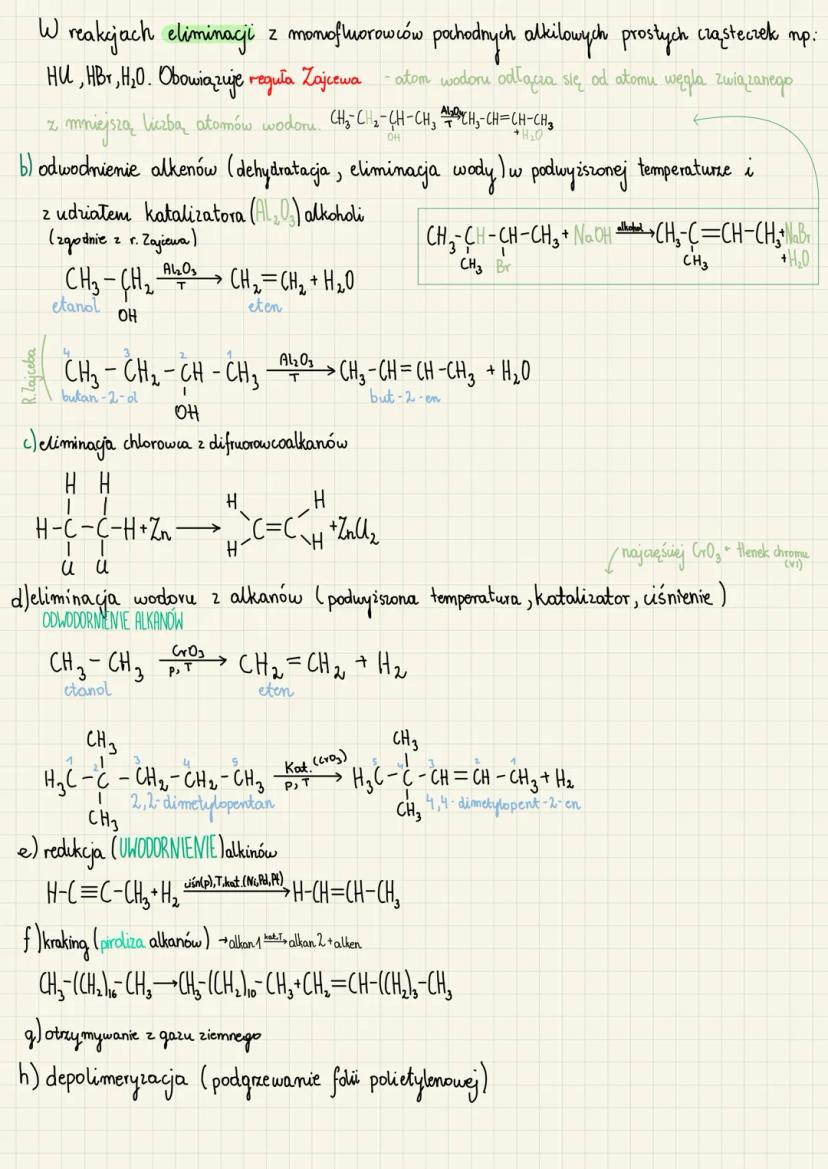 W reakcjach eliminacji z monofluorowców pochodnych alkilowych prostych cząsteczek np.:
HCl, HBr, H₂O. Obowiązuje reguła Zajcewa - atom wodoru odłącza się od atomu węgla związanego
z mniejszą liczbą atomów wodoru. CH₃-CH₂-CH-CH₃ Al₂O₃ T → CH₃-CH=CH-CH₃
OH + H₂O
b) odwodnienie alkenów (dehydratacja, eliminacja wody) w podwyższonej temperaturze i
z udziałem katalizatora (Al₂O₃) alkoholi
(zgodnie z r. Zajcewa)
CH₃-CH-CH-CH₃ + NaOH alkohol → CH₃-C=CH-CH₃ + NaBr
CH₃ Br CH₃ + H₂O
CH₃-CH₂ Al₂O₃ T → CH₂=CH₂ + H₂O
etanol eten
OH
R. Zajceba
4 3 2 1
CH₃-CH₂-CH-CH₃ Al₂O₃ T → CH₃-CH=CH-CH₃ + H₂O
butan-2-ol but-2-en
OH
c) eliminacja chlorowca z difluorowcoalkanów
H H
H-C-C-H + Zn → H H C=C H H + ZnCl₂
Cl Cl
najczęściej CrO₃ - tlenek chromu (VI)
d) eliminacja wodoru z alkanów (podwyższona temperatura, katalizator, ciśnienie)
ODWODORNIENIE ALKANÓW
CH₃-CH₃ CrO₃ p, T → CH₂=CH₂ + H₂
etanol eten
CH₃ CH₃
1 2 3 4 5 5 4 3 2 1
H₃C-C-CH₂-CH₂-CH₃ Kat. (CrO₃) p, T → H₃C-C-CH=CH-CH₃ + H₂
CH₃ 2,2-dimetylopentan CH₃ 4,4-dimetylopent-2-en
e) redukcja (UWODORNIENIE) alkinów
H-C≡C-CH₃ + H₂ ciśn(p), T, kat. (Ni, Pd, Pt) → H-CH=CH-CH₃
f) kraking (piroliza alkanów) → alkan 1 kat. T → alkan 2 + alken
CH₃-(CH₂)₁₆-CH₃ → CH₃-(CH₂)₁₀-CH₃ + CH₂=CH-(CH₂)₃-CH₃
g) otrzymywanie z gazu ziemnego
h) depolimeryzacja (podgrzewanie folii polietylenowej)